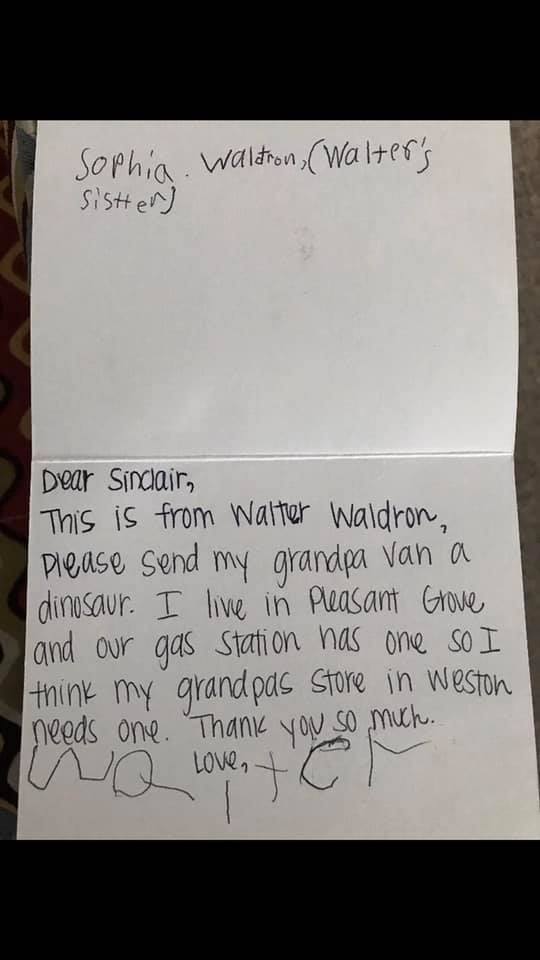 Sophia. Waldron, (Walter's
sistter)
Dear Sinclair,
This is from Walter Waldron,
please send my grandpa Van a
dinosaur. I live in Pleasant Grove
and our gas station has one so I
think my grandpas store in Weston
needs one. Thank you so much.
Love,
Walter